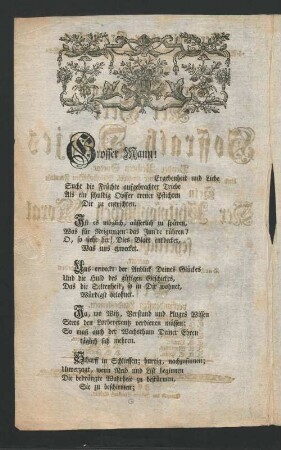 Grosser Mann!
Ergebenheit und Liebe
Sucht die Früchte aufgebrachter Triebe
Als ein schuldig Opffer treuer Pflichten
Dir zu entrichten.
Ist es möglich, äusserlich zu spüren,
Was für Neigungen das Inn're rühren?
O, so siehe her! Dies Blatt entdecket,
Was uns erwecket.
Uns erweckt der Anblick Deines Glückes
Und die Huld des gütigen Geschickes,
Das die Seltenheit, so in Dir wohnet,
Würdigst belohnet.
Ja, wo Witz, Verstand und kluges Wissen
Stets den Lorbeercrantz verdienen müssen:
So muß auch der Wachsthum Deiner Ehren
täglich sich mehren.
Scharff in Schliessen; hurtig, nachzusinnen;
Unverzagt, wenn Neid und List beginnen
Die bedrängte Wahrheit zu bestürmen,
Sie zu beschirmen;